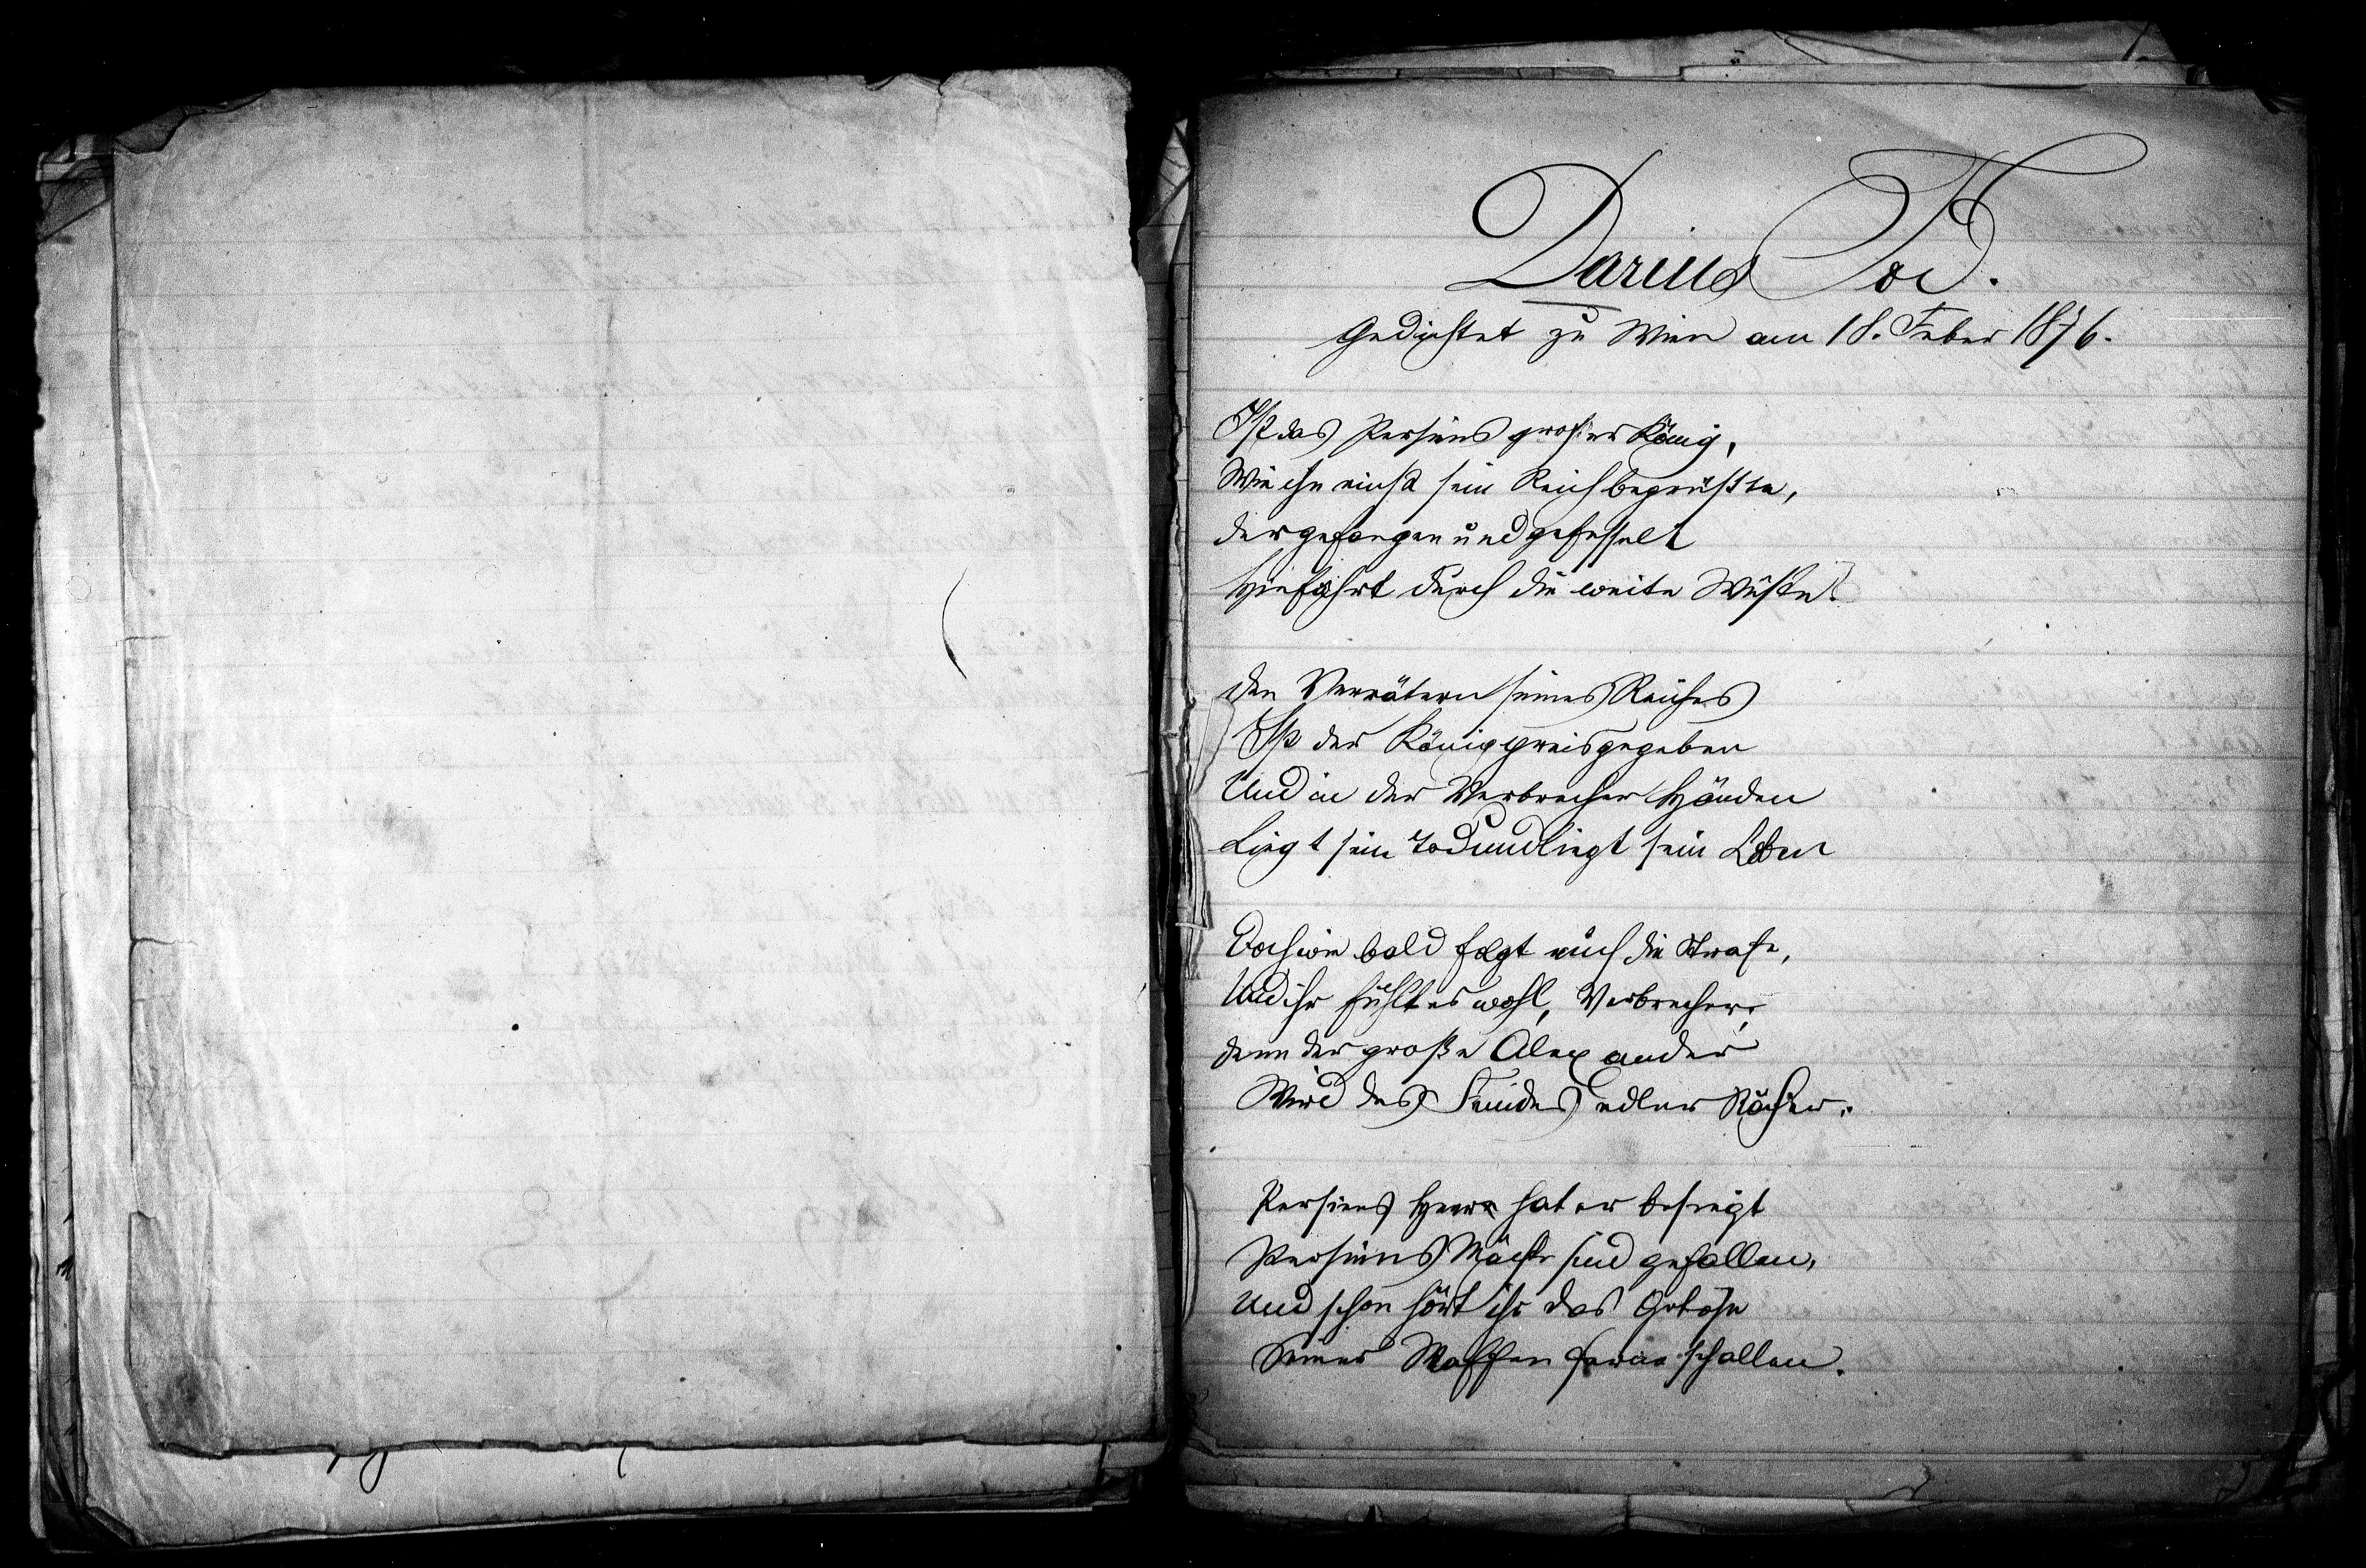 Darius Tod.
Gedichtet zu Wien am 18. Feber 1876.
Ist das Persiens großer König,
Wie ihn einst sein Reich begrüßte,
Der gefangen und gefesselt
Hinfährt durch die weite Wüste?
Den Verrätern seines Reiches
Ist der König preisgegeben
Und in der Verbrecher Händen
Liegt sein Tod und liegt sein Leben
Doch wie bald folgt euch die Strafe,
Und ihr fühlt es wohl, Verbrecher;
Denn der große Alexander
Wird des Feindes edler Rächer.
Persiens Heere hat er besiegt
Persiens Mächte sind gefallen,
Und schon hört ihr das Getöse
Seiner Waffen ferne schallen.